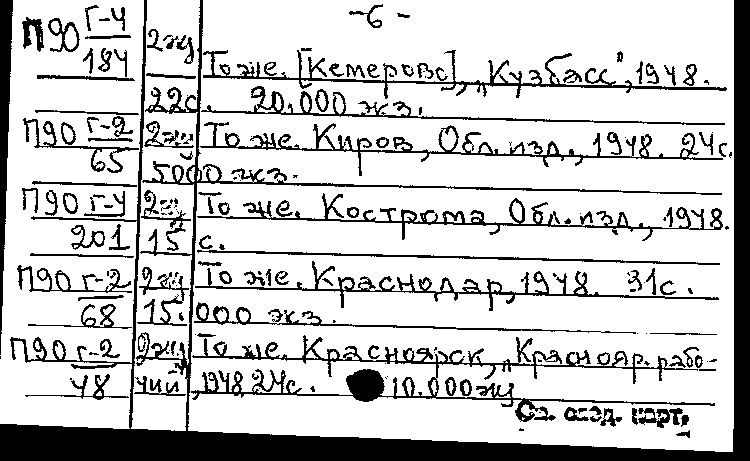 -6-
П90 Г-4 2экз
184 То же. [Кемерово], „Кузбасс", 1948.
22с. 20.000 экз.
П90 Г-2 2экз То же. Киров, Обл. изд., 1948. 24с.
65 5000 экз.
П90 Г-4 2экз То же. Кострома, Обл. изд., 1948.
201 15 с.
П90 Г-2 2экз То же. Краснодар, 1948. 31с.
68 15.000 экз.
П90 Г-2 2экз То же. Красноярск, „Краснояр. рабо-
48 чий", 1948. 24с. 10.000 экз
См. след. карт.